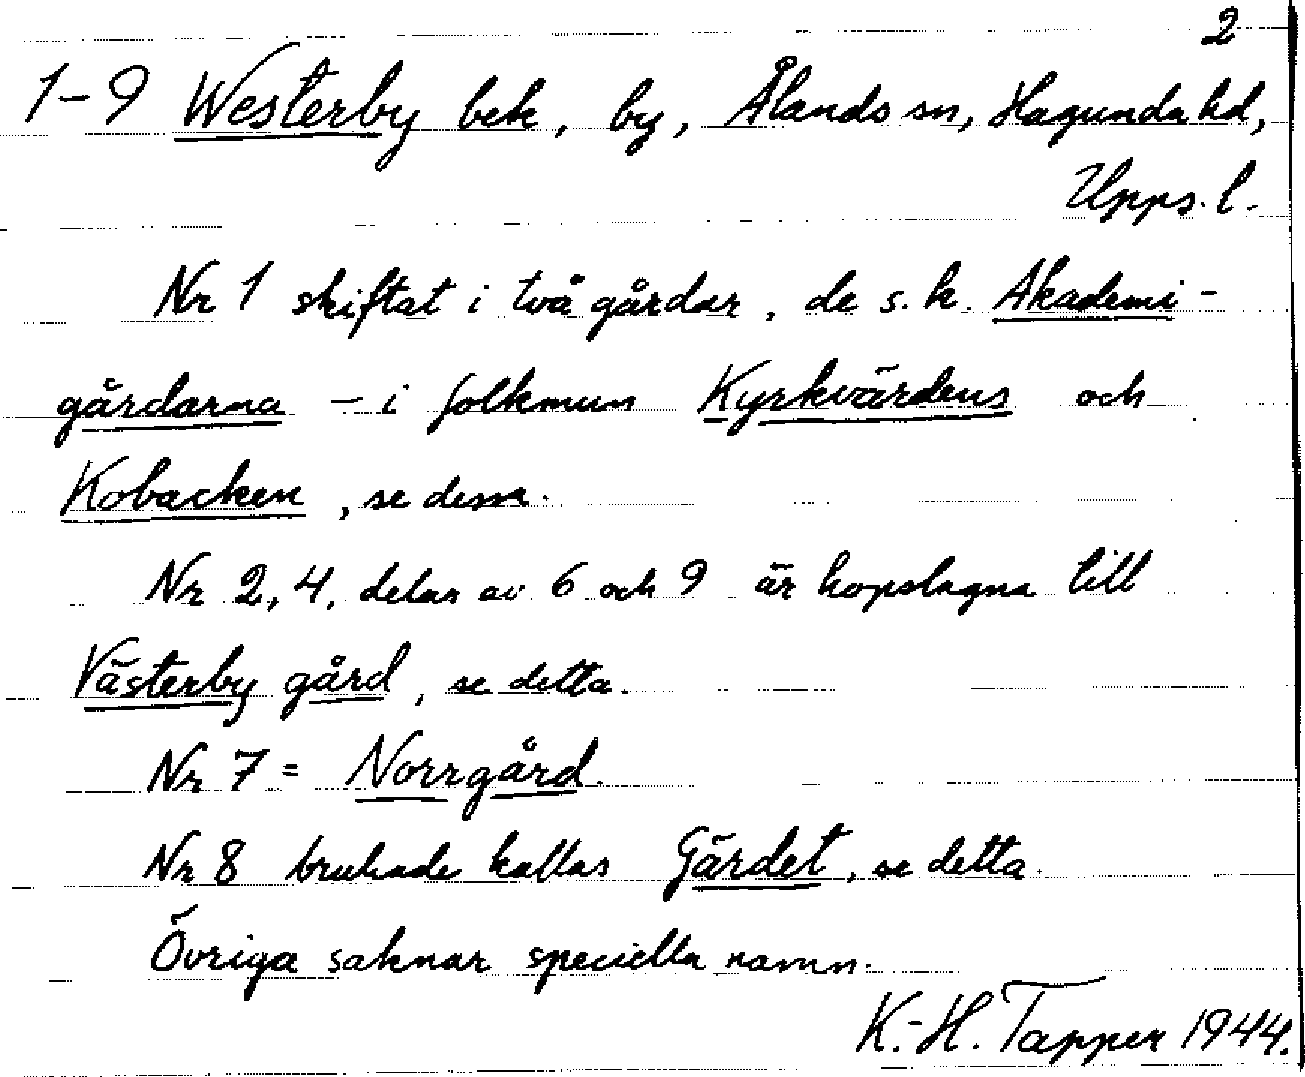 2
1-9 Westerby bek, by, Ålands sn, Hagunda hd,
Upps. l.
Nr 1 skiftat i två gårdar, de s.k. Akademi-
gårdarna - i folkmun Kyrkvärdens och
Kobacken, se dem.
Nr 2, 4, delar av 6 och 9 är hopslagna till
Västerby gård, se detta.
Nr 7 = Norrgård.
Nr 8 brukade kallas Gärdet, se detta.
Övriga saknar speciella namn.
K.-H. Tapper 1944.